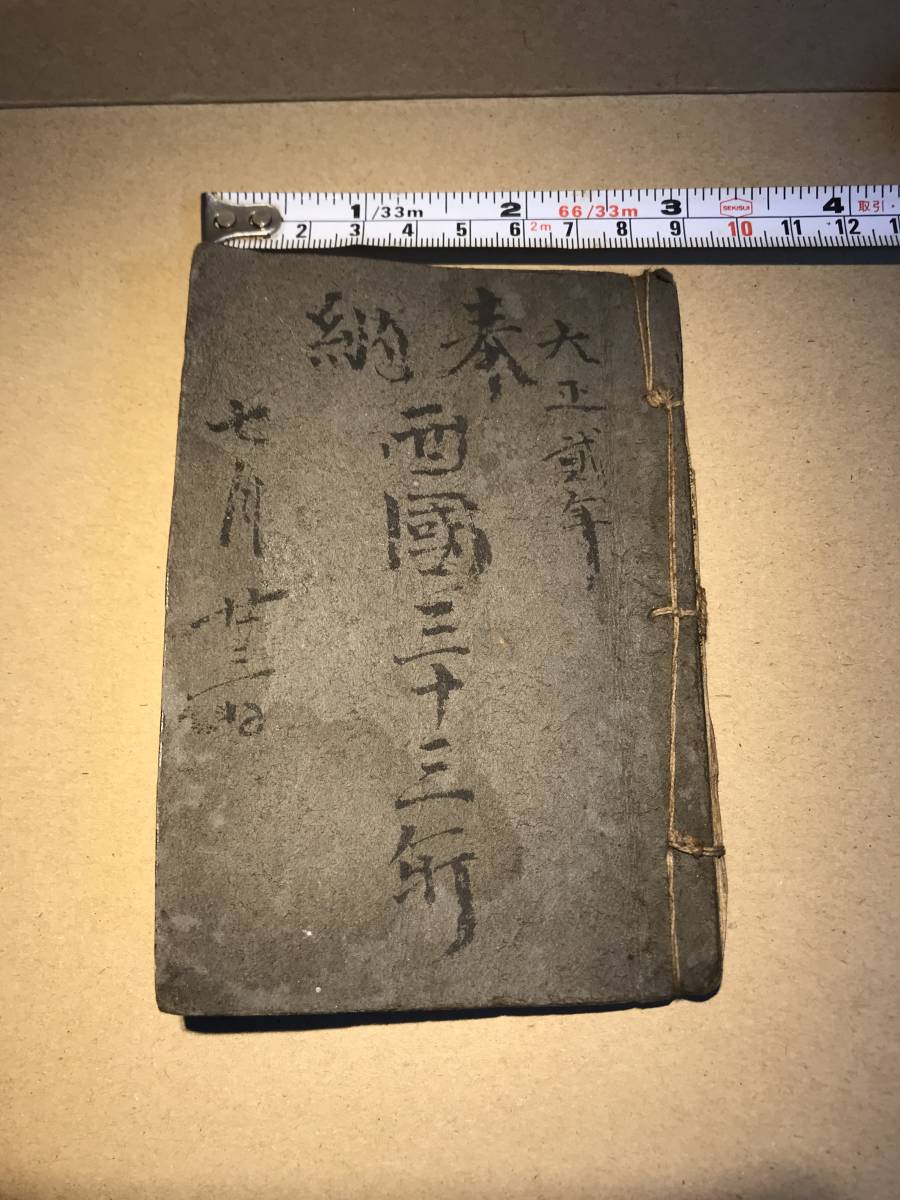 1 /33m 2 66/33m 3 SEKISUI 4 取引・
2 3 4 5 6 2m 7 8 9 10 11 12 1
大正貳年
奉納
西國三十三所
七月廿三日